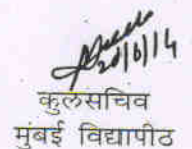 20/6/14
कुलसचिव
मुंबई विद्यापीठ